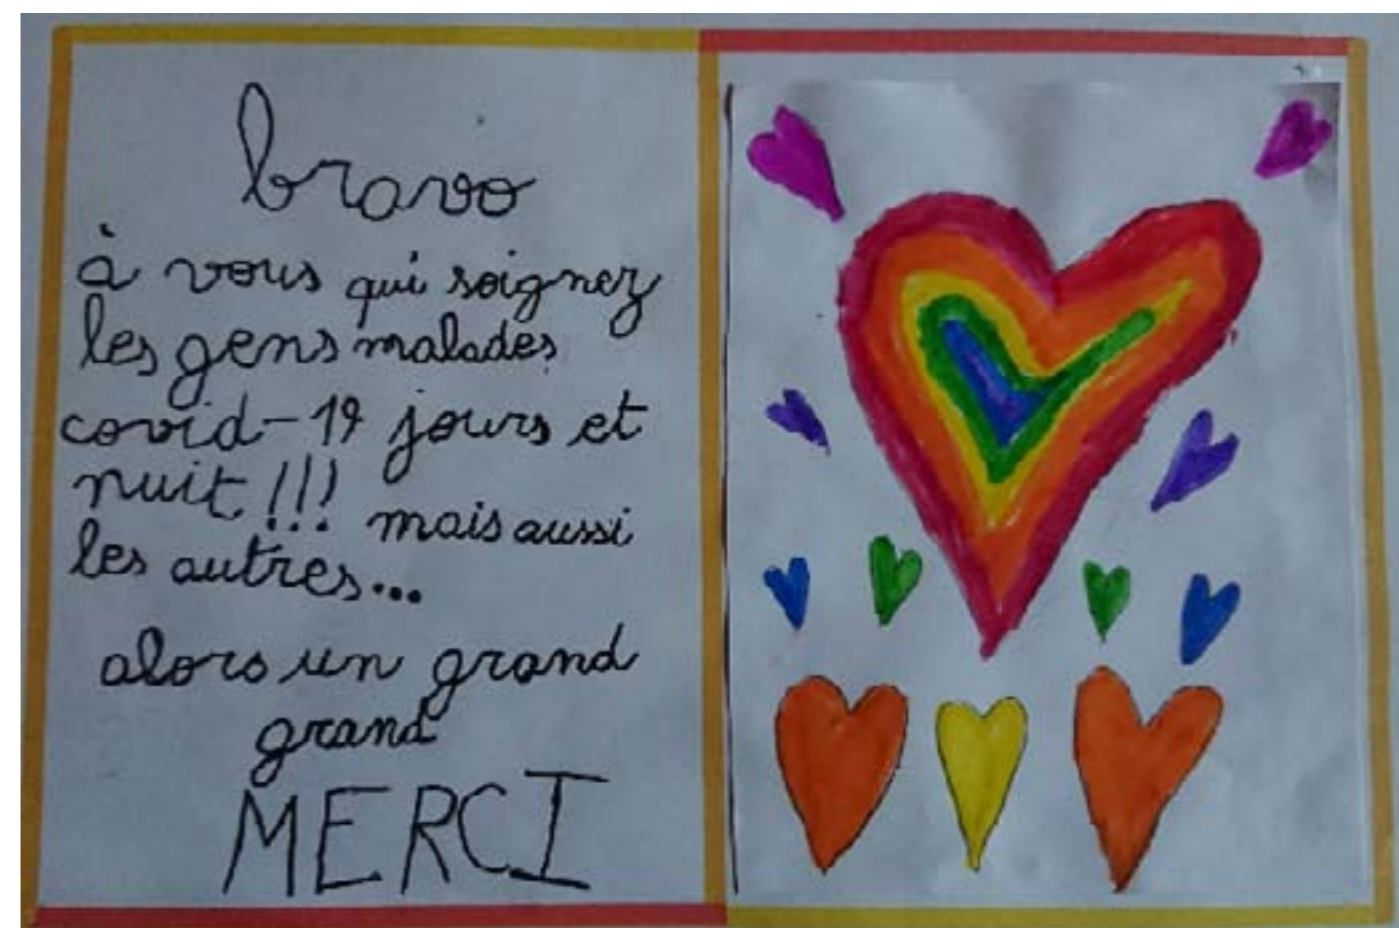 bravo
à vous qui soignez
les gens malades
covid-19 jours et
nuit !!! mais aussi
les autres...
alors un grand
grand
MERCI